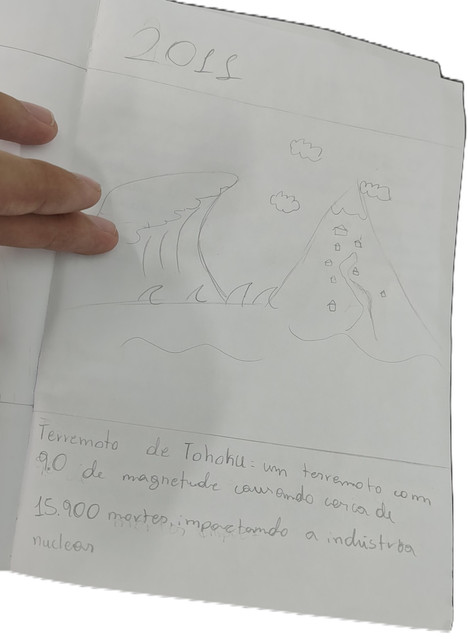 2011
Terremoto de Tohoku: um terremoto com
9.0 de magnetude causando cerca de
15.900 mortes, impactando a indústria
nuclear